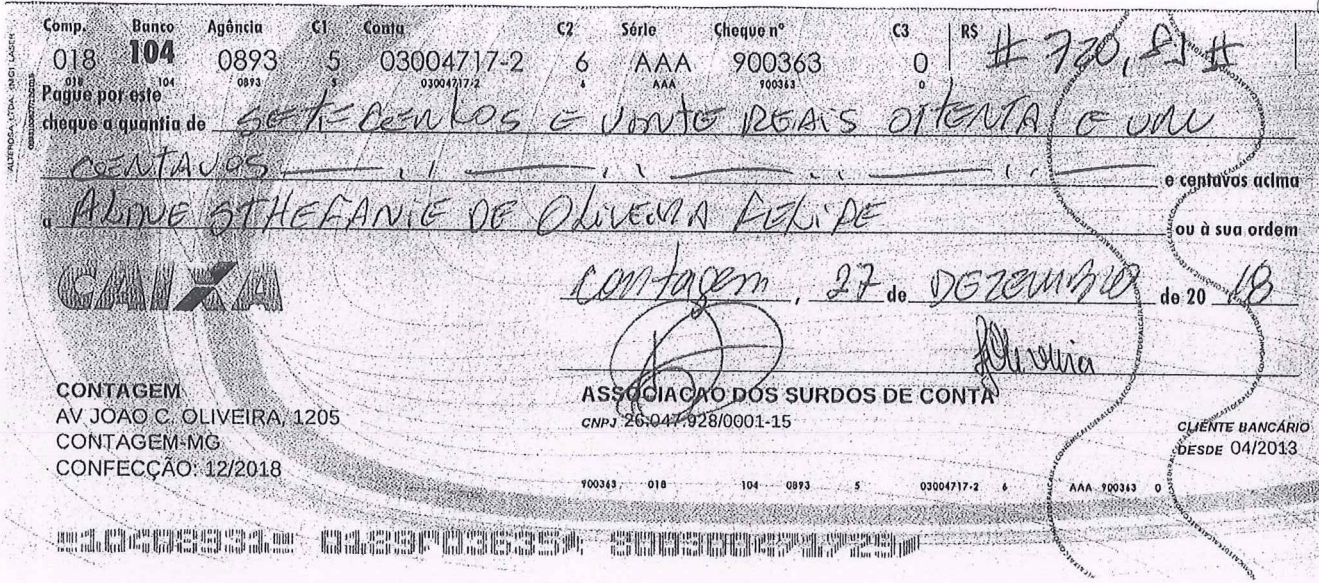 Comp. Banco Agência C1 Conta C2 Série Cheque nº C3 R$
018 104 0893 5 03004717-2 6 AAA 900363 0 # 720,81 #
018 104 0893 5 03004717-2 6 AAA 900363 0
Pague por este
cheque a quantia de SETECENTOS E VINTE REAIS OITENTA E UM
CENTAVOS e centavos acima
a ALINE STHEFANIE DE OLIVEIRA FELIPE ou à sua ordem
CAIXA
Contagem, 27 de DEZEMBRO de 20 18
Oliveira
CONTAGEM
AV JOAO C. OLIVEIRA, 1205
CONTAGEM-MG
CONFECÇÃO: 12/2018
ASSOCIACAO DOS SURDOS DE CONTA
CNPJ 26.047.928/0001-15
CLIENTE BANCÁRIO
DESDE 04/2013
900363 018 104 0893 5 03004717-2 6 AAA 900363 0
10408931 0189003635 800300471729